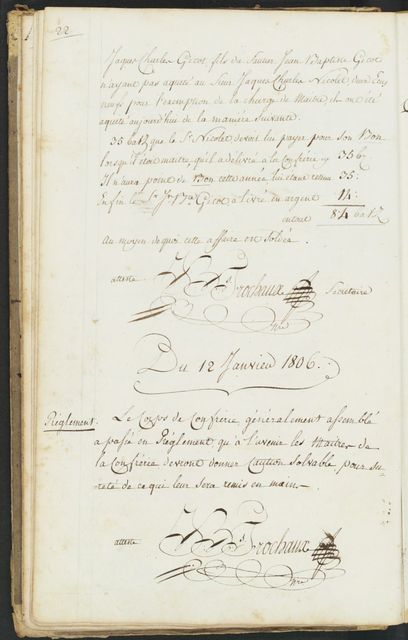 22
Jaques Charles Gicot, fils de feu Jean Baptiste Gicot
n'ayant pas aquité au Sieur Jaques Charles Nicolet deux Ecus
neufs pour l'exemption de la charge de Maitre, ils ont été
aquité aujourd'hui de la manière suivante.
35 batz que le Sr Nicolet devoit lui payer pour son Bon
lorsqu'il étoit maitre, qu'il a délivré à la Confrérie 35 bz
Il n'aura point de Bon cette année, lui étant retenu 35:
Enfin le Sr Jn Bte Gicot a livré en argent 14:
en tout 84 batz
Au moyen de quoi cette affaire est Soldée.
atteste Frochaux Secretaire
Du 12 Janvier 1806.
Réglement.
Le Corps de Confrérie généralement assemblé
a passé en Réglement qu'à l'avenir les Maitres de
la Confrérie devront donner Caution solvable pour su-
reté de ce qui leur sera remis en main.
atteste Frochaux